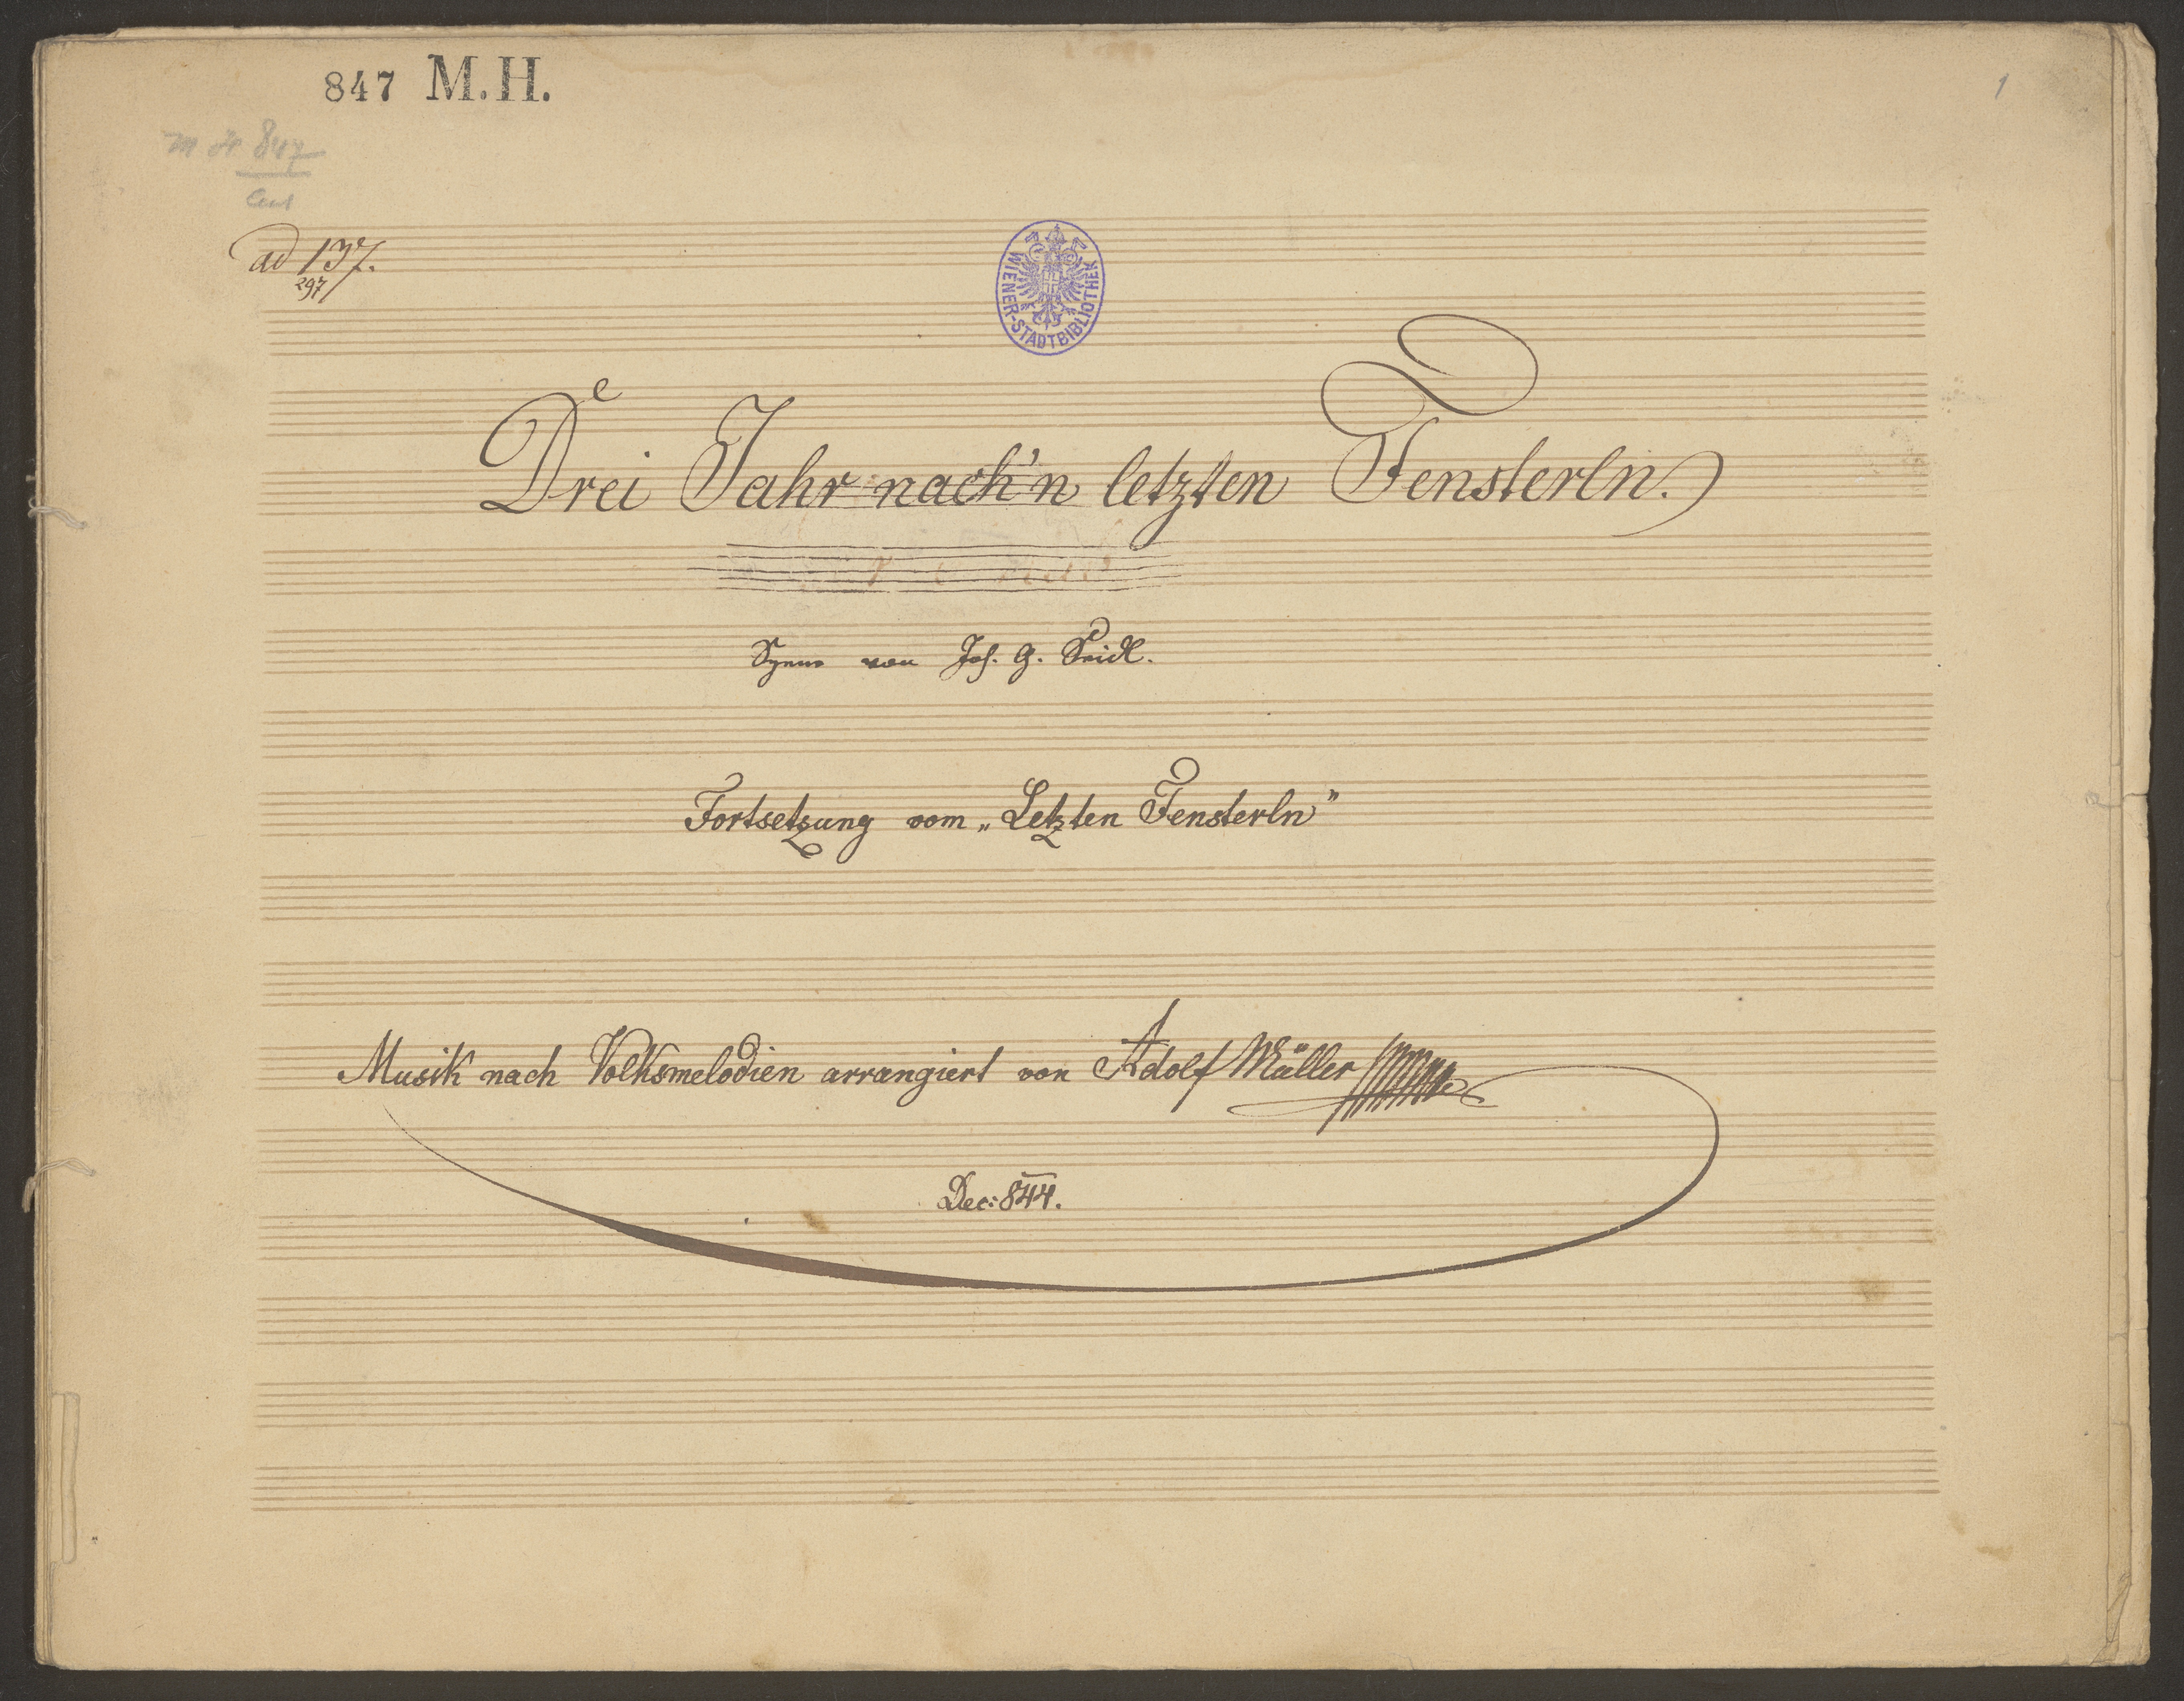 847 M.H.
1
M H 847
ad 137.
297
WIENER-STADTBIBLIOTHEK
Drei Jahr nach'n letzten Fensterln.
Szene von Joh. G. Seidl.
Fortsetzung vom „Letzten Fensterln"
Musik nach Volksmelodien arrangiert von Adolf Müller
Dec: 844.